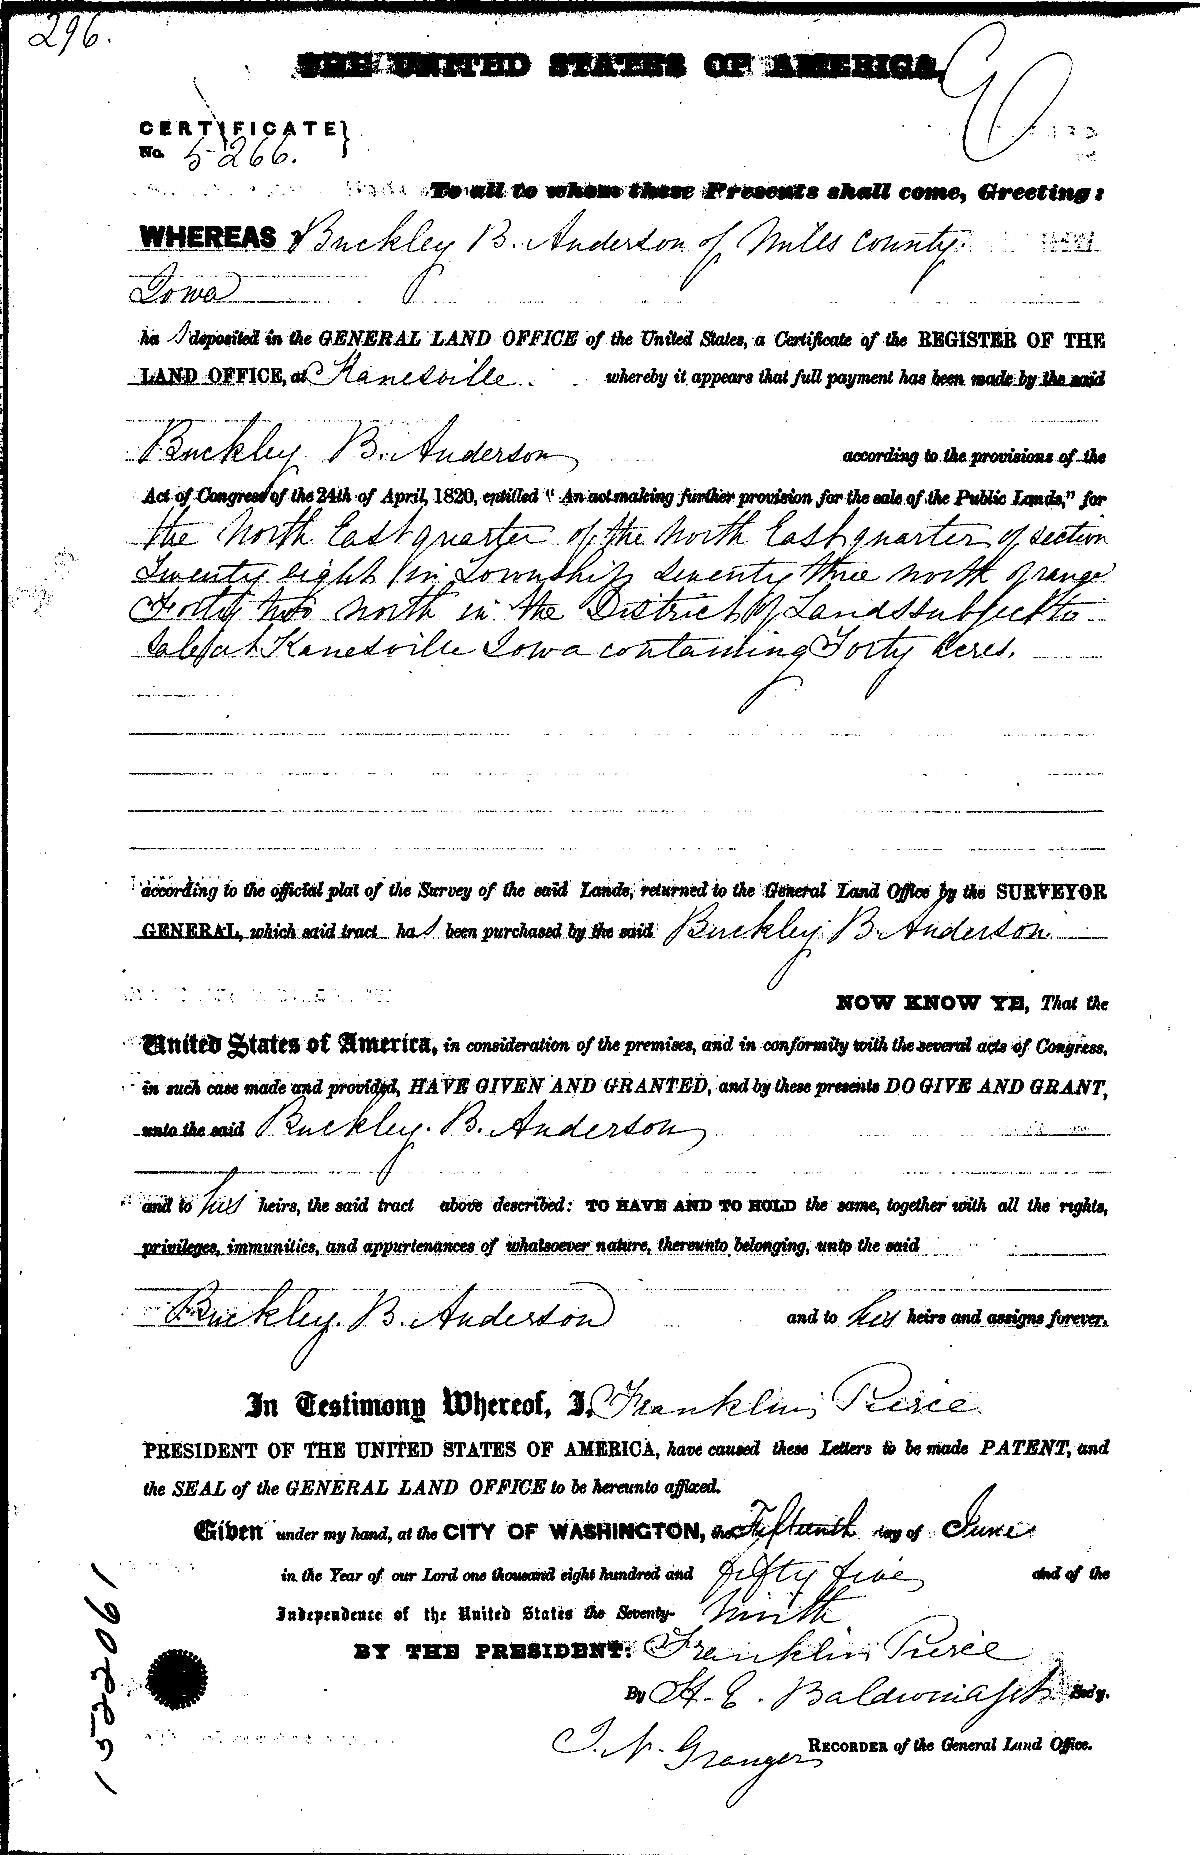 296.
THE UNITED STATES OF AMERICA,
CERTIFICATE
No. 5266.
To all to whom these Presents shall come, Greeting:
WHEREAS Buckley B. Anderson of Mills County
Iowa
has deposited in the GENERAL LAND OFFICE of the United States, a Certificate of the REGISTER OF THE
LAND OFFICE, at Kanesville. whereby it appears that full payment has been made by the said
Buckley B. Anderson according to the provisions of the
Act of Congress of the 24th of April, 1820, entitled "An act making further provision for the sale of the Public Lands," for
the North East quarter of the North East quarter of section
Twenty eight in Township seventy three north of range
Forty two north in the District of Lands subject to
sale at Kanesville Iowa containing Forty Acres.
according to the official plat of the Survey of the said Lands, returned to the General Land Office by the SURVEYOR
GENERAL, which said tract has been purchased by the said Buckley B. Anderson
NOW KNOW YE, That the
United States of America, in consideration of the premises, and in conformity with the several acts of Congress,
in such case made and provided, HAVE GIVEN AND GRANTED, and by these presents DO GIVE AND GRANT,
unto the said Buckley. B. Anderson
and to his heirs, the said tract above described: TO HAVE AND TO HOLD the same, together with all the rights,
privileges, immunities, and appurtenances of whatsoever nature, thereunto belonging, unto the said
Buckley. B. Anderson and to his heirs and assigns forever.
In Testimony Whereof, I, Franklin Pierce
PRESIDENT OF THE UNITED STATES OF AMERICA, have caused these Letters to be made PATENT, and
the SEAL of the GENERAL LAND OFFICE to be hereunto affixed.
Given under my hand, at the CITY OF WASHINGTON, the Fifteenth day of June
in the Year of our Lord one thousand eight hundred and fifty five and of the
Independence of the United States the Seventy-Ninth
BY THE PRESIDENT: Franklin Pierce
By H. E. Baldwin Asst Secy.
J. N. Granger RECORDER of the General Land Office.
152206 1